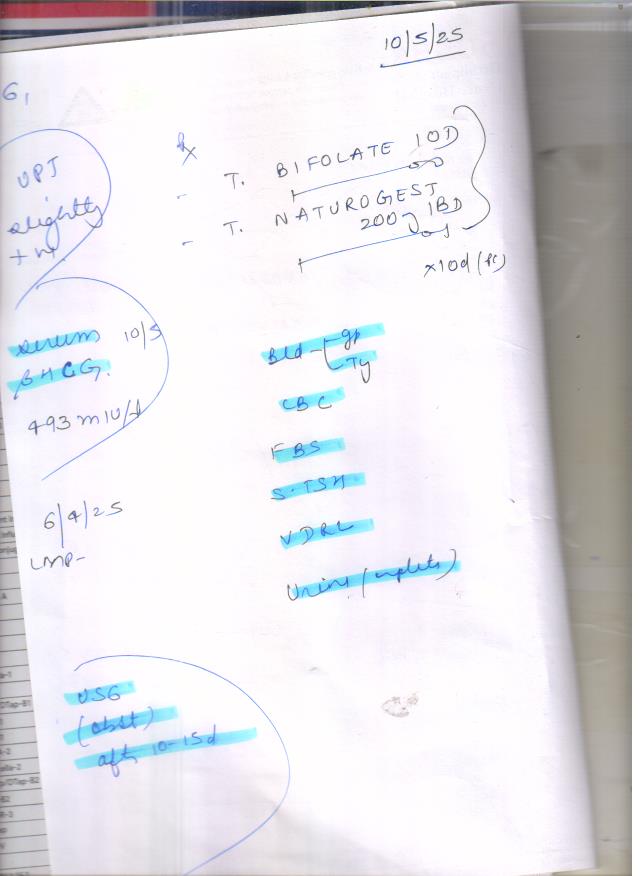 10/5/25
G1
UPT
slightly
+ve
Rx
- T. BIFOLATE 1OD
- T. NATUROGEST
200 1BD
x10d
Serum 10/5
βHCG.
493 mIU/
6/4/25
LMP-
Bld - gp
Ty
CBC
FBS
S.TSH
VDRL
Urine (complete)
USG
(obst)
after 10-15d